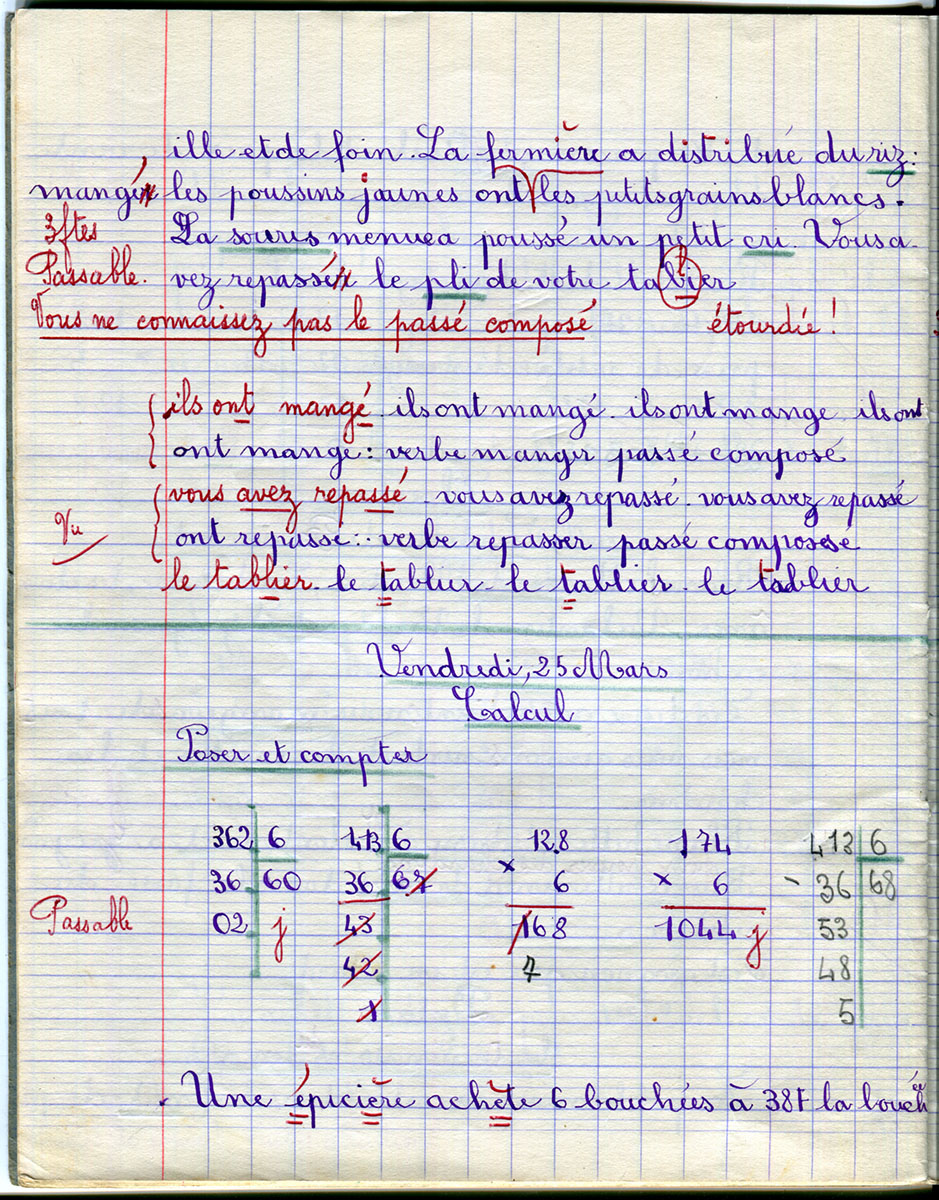 ille et de foin. La fermière a distribué du riz:
mangé les poussins jaunes ont les petits grains blancs.
3 ftes La souris menue a poussé un petit cri. Vous a-
Passable. vez repassé le pli de votre tablier
Vous ne connaissez pas le passé composé étourdie!
ils ont mangé ils ont mangé. ils ont mange ils ont
ont mange: verbe manger passé composé
vous avez repassé. vous avez repassé. vous avez repassé
Vu ont repasse: verbe repasser passé compose
le tablier. le tablier. le tablier. le tablier
Vendredi, 25 Mars
Calcul
Poser et compter
362 6 413 6 128 174 413 6
36 60 36 67 × 6 × 6 - 36 68
Passable 02 j 43 168 1044 j 53
42 7 48
1 5
Une épicière achète 6 bouchées à 38f la bouchée